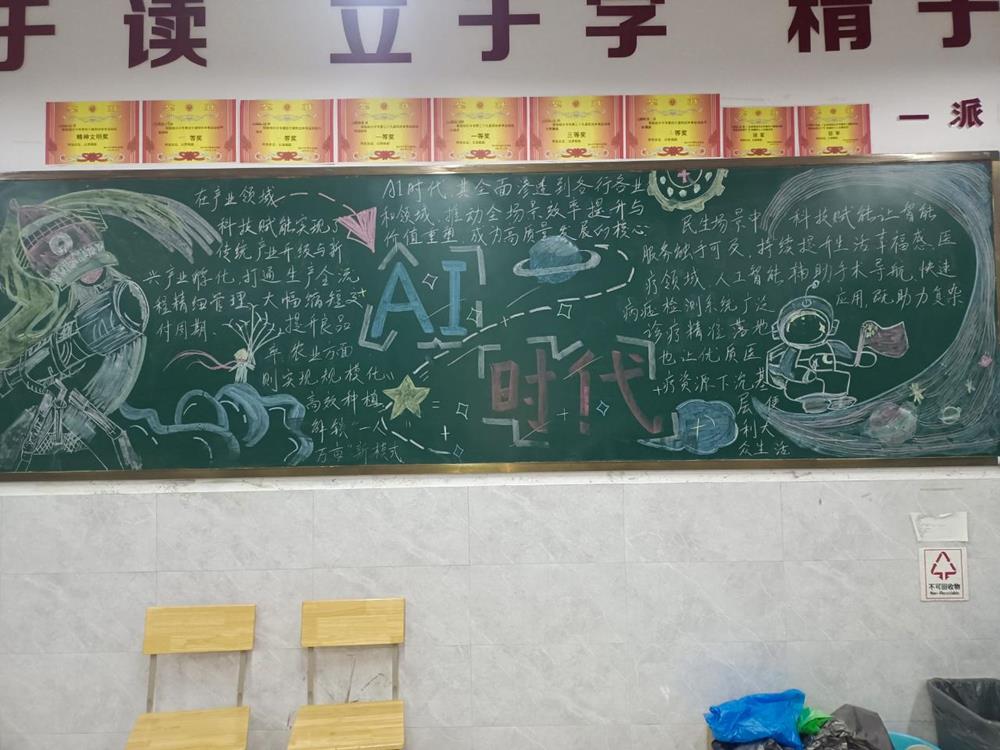 于读 立于学 精于
一派
精神文明奖
一等奖
一等奖
一等奖
一等奖
三等奖
一等奖
在产业领域
科技赋能实现了
传统产业升级与新
兴产业孵化,打通生产全流
程精细管理、大幅缩短交
付周期、提升良品
率,农业方面
则实现规模化
高效种植,
解锁“一人
万亩”新模式
AI时代,其全面渗透到各行各业
和领域,推动全场景效率提升与
价值重塑,成为高质量发展的核心
AI
时代
民生场景中,科技赋能让智能
服务触手可及,持续提升生活幸福感,医
疗领域,人工智能辅助手术导航、快速
病症检测系统广泛应用,既助力复杂
诊疗精准落地
也让优质医
疗资源下沉基
层,便
利大
众生活
不可回收物
Non-Recyclable